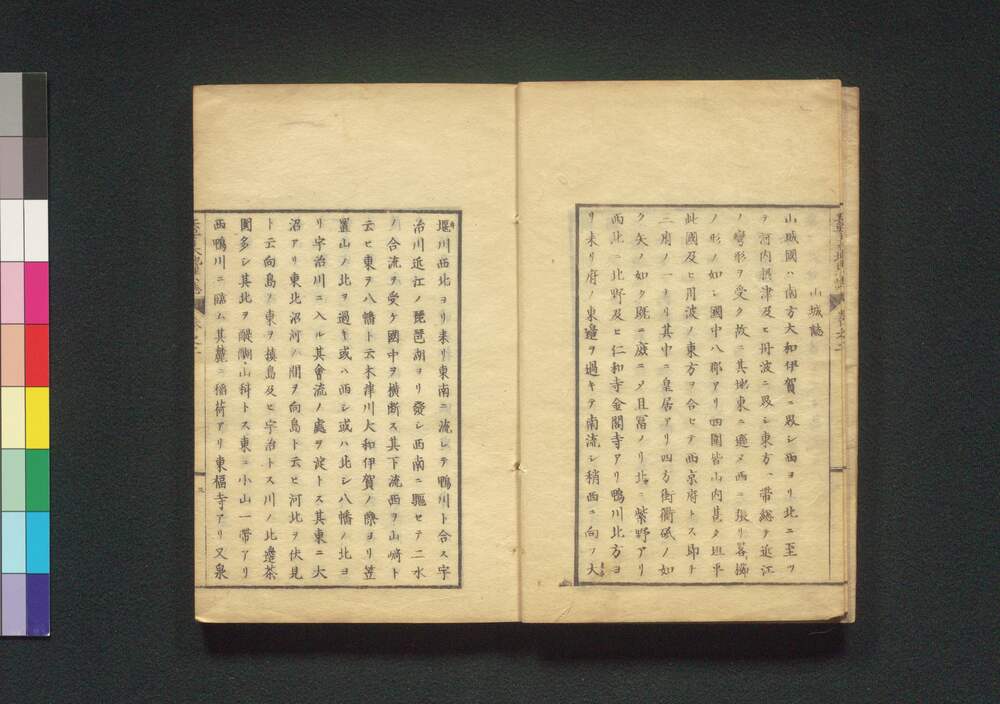 山城誌
山城國ハ南方大和伊賀ニ界シ西ヨリ北ニ至ツ
ヲ河内摂津及ヒ丹波ニ界シ東方一帯總テ近江
ノ彎形ヲ受ク故ニ其地東ニ 西ニ張リ畧櫛
ノ形ノ如シ國中八郡アリ四圍皆山内甚タ坦平
此國及ヒ丹波ノ東方ヲ合セテ西京府トス即ト
二府ノ一ナリ其中ニ皇居アリ四方街衢砥ノ如
ク矢ノ如ク既ニ 且冨ノリ北ニ紫野アリ
西北ニ北野及ヒ仁和寺金閣寺アリ鴨川北方ヨ
リ来リ府ノ東邉ヲ過キテ南流シ稍西ニ向フ大
堰川西北ヨリ来リ東南ニ流レテ鴨川ト合ス宇
治川近江ノ琵琶湖ヨリ發シ西南ニ驅セテ二水
ノ合流ヲ受ケ國中ヲ横断ス其下流西ヲ山﨑ト
云ヒ東ヲ八幡ト云木津川大和伊賀ノ際ヨリ笠
置山ノ北ヲ過キ或ハ西シ或ハ北シ八幡ノ北ヨ
リ宇治川ニ入ル其會流ノ處ヲ淀トス其東ニ大
沼アリ東北沼河ノ間ヲ向島ト云ヒ河北ヲ伏見
ト云向島ノ東ヲ槙島及ヒ宇治トス川ノ北邉茶
園多シ其北ヲ醍醐山科トス東ニ小山一帯アリ
西鴨川ニ臨ム其麓ニ稲荷アリ東福寺アリ又泉